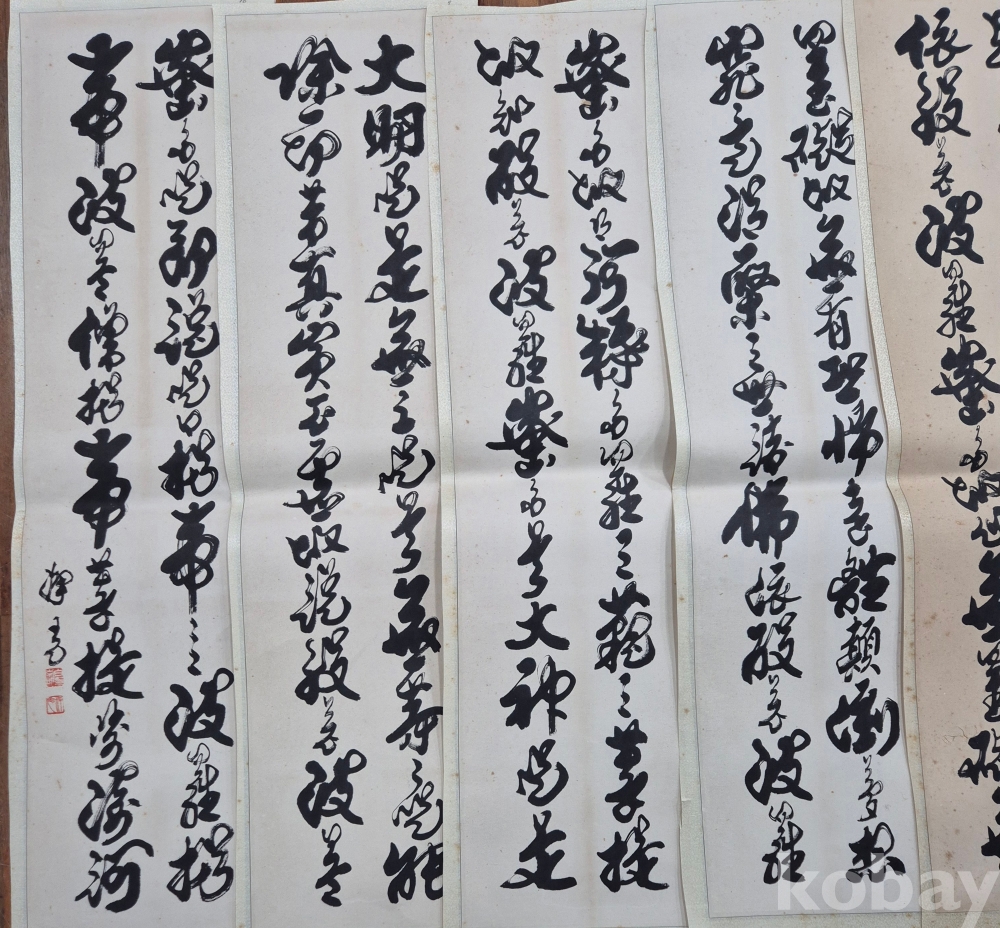 依般若波羅蜜多故心無罣礙
罣礙故無有恐怖遠離顛倒夢想
究竟涅槃三世諸佛依般若波羅
蜜多故得阿耨多羅三藐三菩提
故知般若波羅蜜多是大神呪是
大明呪是無上呪是無等々呪能
除一切苦真實不虛故說般若波羅
蜜多呪即說呪曰揭帝々波羅揭
帝波羅僧揭帝菩提婆訶
kobay